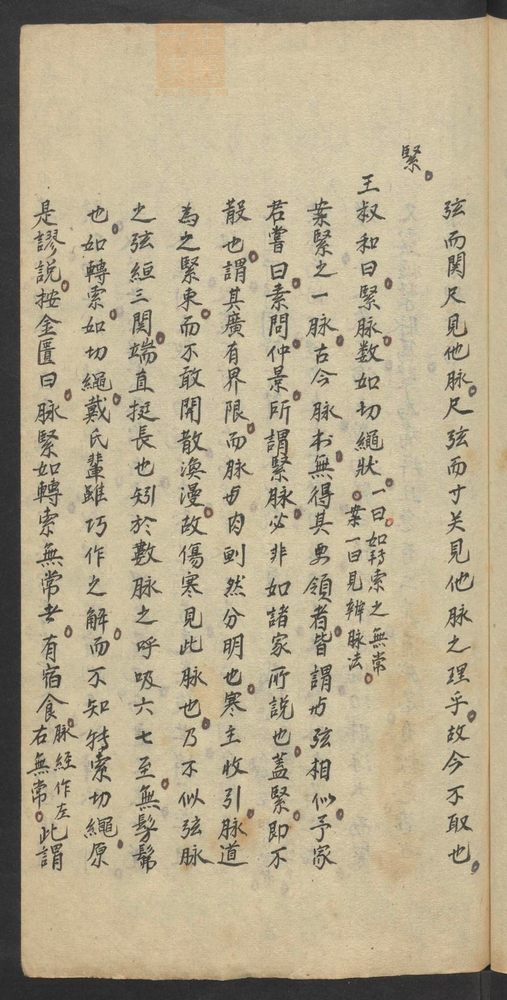 弦而関尺見他脉尺弦而寸关見他脉之理乎故今不取也
緊
王叔和曰緊脉数如切繩狀一曰如轉索之無常案一曰見辨脉法
案緊之一脉古今脉书無得其要領者皆謂与弦相似予家
君嘗曰素問仲景所謂緊脉必非如諸家所説也蓋緊即不
散也謂其廣有界限而脉与肉劃然分明也寒主收引脉道
為之緊束而不敢開散渙漫故傷寒見此脉也乃不似弦脉
之弦絙三関端直挺長也矧於數脉之呼吸六七至無髣髴
也如轉索如切繩戴氏輩雖巧作之解而不知轉索切繩原
是謬説按金匱曰脉緊如轉索無常者有宿食脉経作左右無常此謂